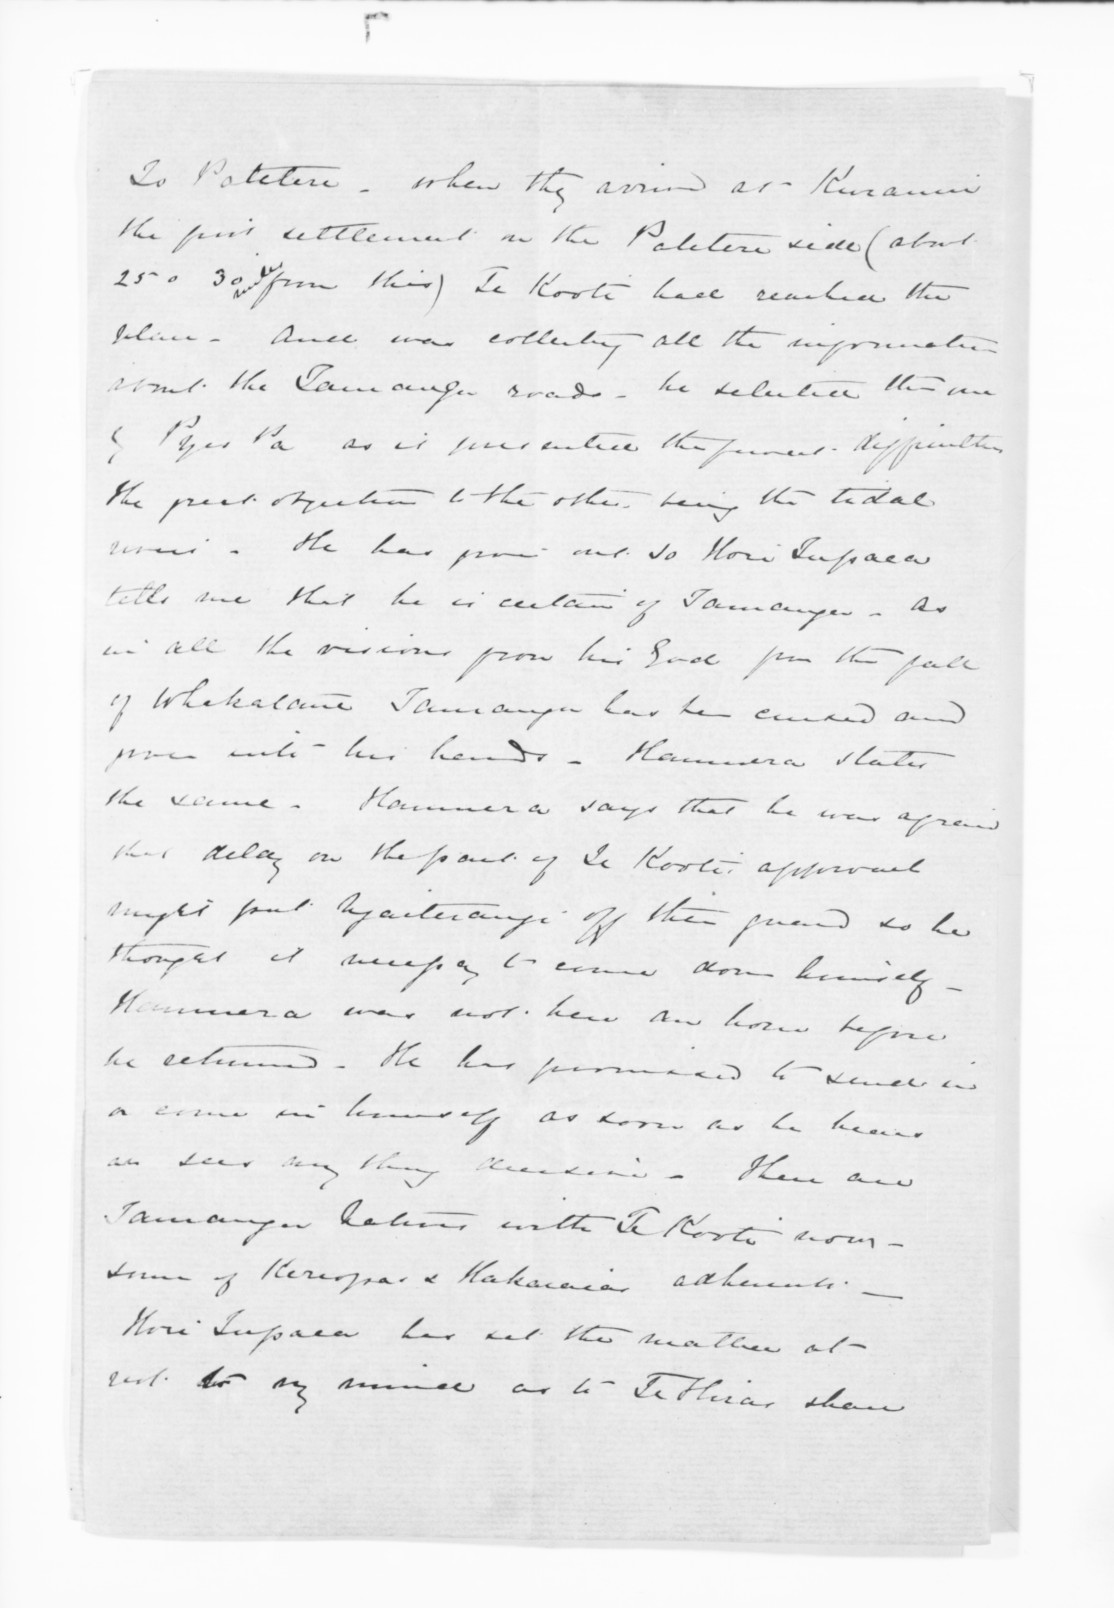 To Patetere - when they arrived at Kuranui
the first settlement on the Patetere side (about
25 o 30 miles from this) Te Kooti had reached the
place - And was collecting all the information
about the Tauranga roads - he selected the one
by Pyes Pa as it presented the fewest difficulties
the great objection to the other being the tidal
rivers - He has given out so Hori Tupaea
tells me that he is certain of Tauranga - As
in all the visions from his God from the fall
of Whakatane Tauranga has been cursed and
given into his hands - Hamuera states
the same - Hamuera says that he was afraid
that delay on the part of Te Kooti approach
might put Ngaiterangi off their guard so he
thought it necessary to come down himself -
Hamuera was not here an hour before
he returned - He has promised to send in
or come in himself as soon as he hears
or sees any thing decisive - There are
Tauranga Natives with Te Kooti now -
some of Kereopas & Hakaraias adherents -
Hori Tupaea has set the matter at
rest to my mind as to Te Hiras share